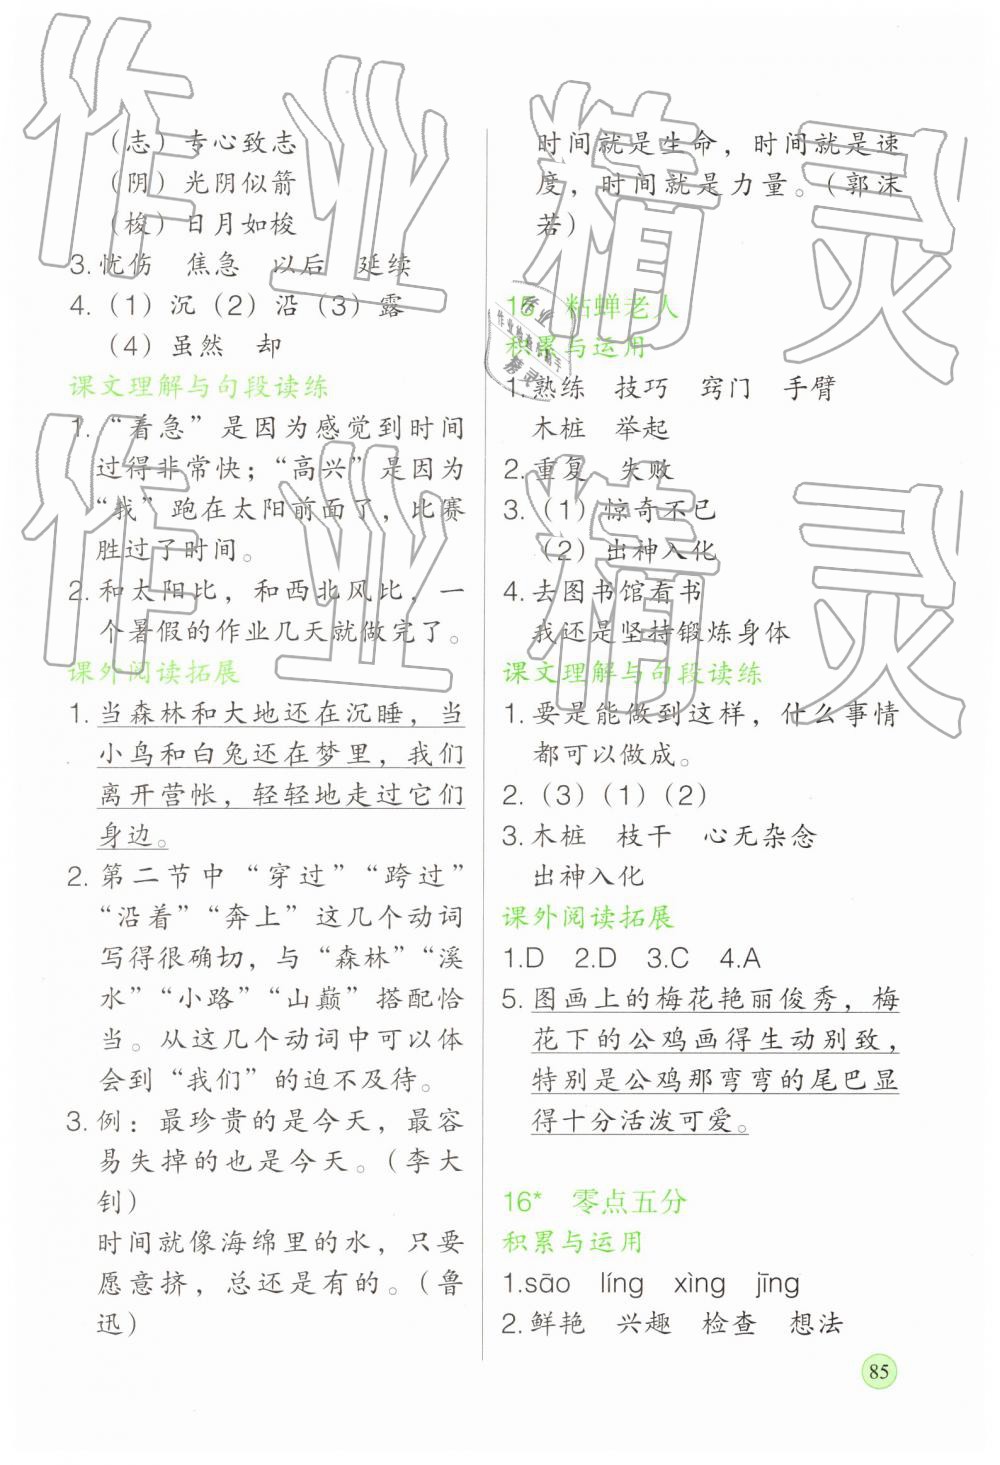 （志）专心致志
（阴）光阴似箭
（梭）日月如梭
3. 忧伤 焦急 以后 延续
4.（1）沉（2）沿（3）露
（4）虽然 却
课文理解与句段读练
1. “着急”是因为感觉到时间
过得非常快；“高兴”是因为
“我”跑在太阳前面了，比赛
胜过了时间。
2. 和太阳比，和西北风比，一
个暑假的作业几天就做完了。
课外阅读拓展
1. 当森林和大地还在沉睡，当
小鸟和白兔还在梦里，我们
离开营帐，轻轻地走过它们
身边。
2. 第二节中“穿过”“跨过”
“沿着”“奔上”这几个动词
写得很确切，与“森林”“溪
水”“小路”“山巅”搭配恰
当。从这几个动词中可以体
会到“我们”的迫不及待。
3. 例：最珍贵的是今天，最容
易失掉的也是今天。（李大
钊）
时间就像海绵里的水，只要
愿意挤，总还是有的。（鲁
迅）
时间就是生命，时间就是速
度，时间就是力量。（郭沫
若）
15 粘蝉老人
积累与运用
1. 熟练 技巧 窍门 手臂
木桩 举起
2. 重复 失败
3.（1）惊奇不已
（2）出神入化
4. 去图书馆看书
我还是坚持锻炼身体
课文理解与句段读练
1. 要是能做到这样，什么事情
都可以做成。
2.（3）（1）（2）
3. 木桩 枝干 心无杂念
出神入化
课外阅读拓展
1.D 2.D 3.C 4.A
5. 图画上的梅花艳丽俊秀，梅
花下的公鸡画得生动别致，
特别是公鸡那弯弯的尾巴显
得十分活泼可爱。
16* 零点五分
积累与运用
1.sāo líng xìng jīng
2. 鲜艳 兴趣 检查 想法
85
作业精灵
作业精灵